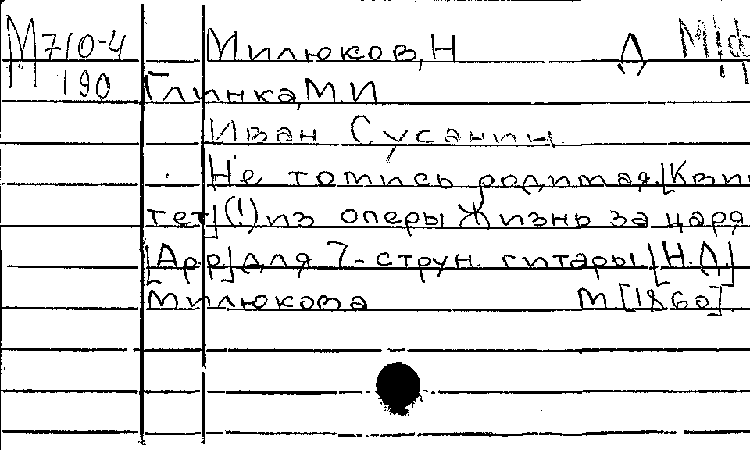 М710-4 Милюков, Н Д
190 Глинка, М.И
Иван Сусанин
Не томись родимая. [Квин
тет] (!) из оперы Жизнь за царя
[Арр] для 7-струн. гитары [Н.Д.]
Милюкова М [1860]